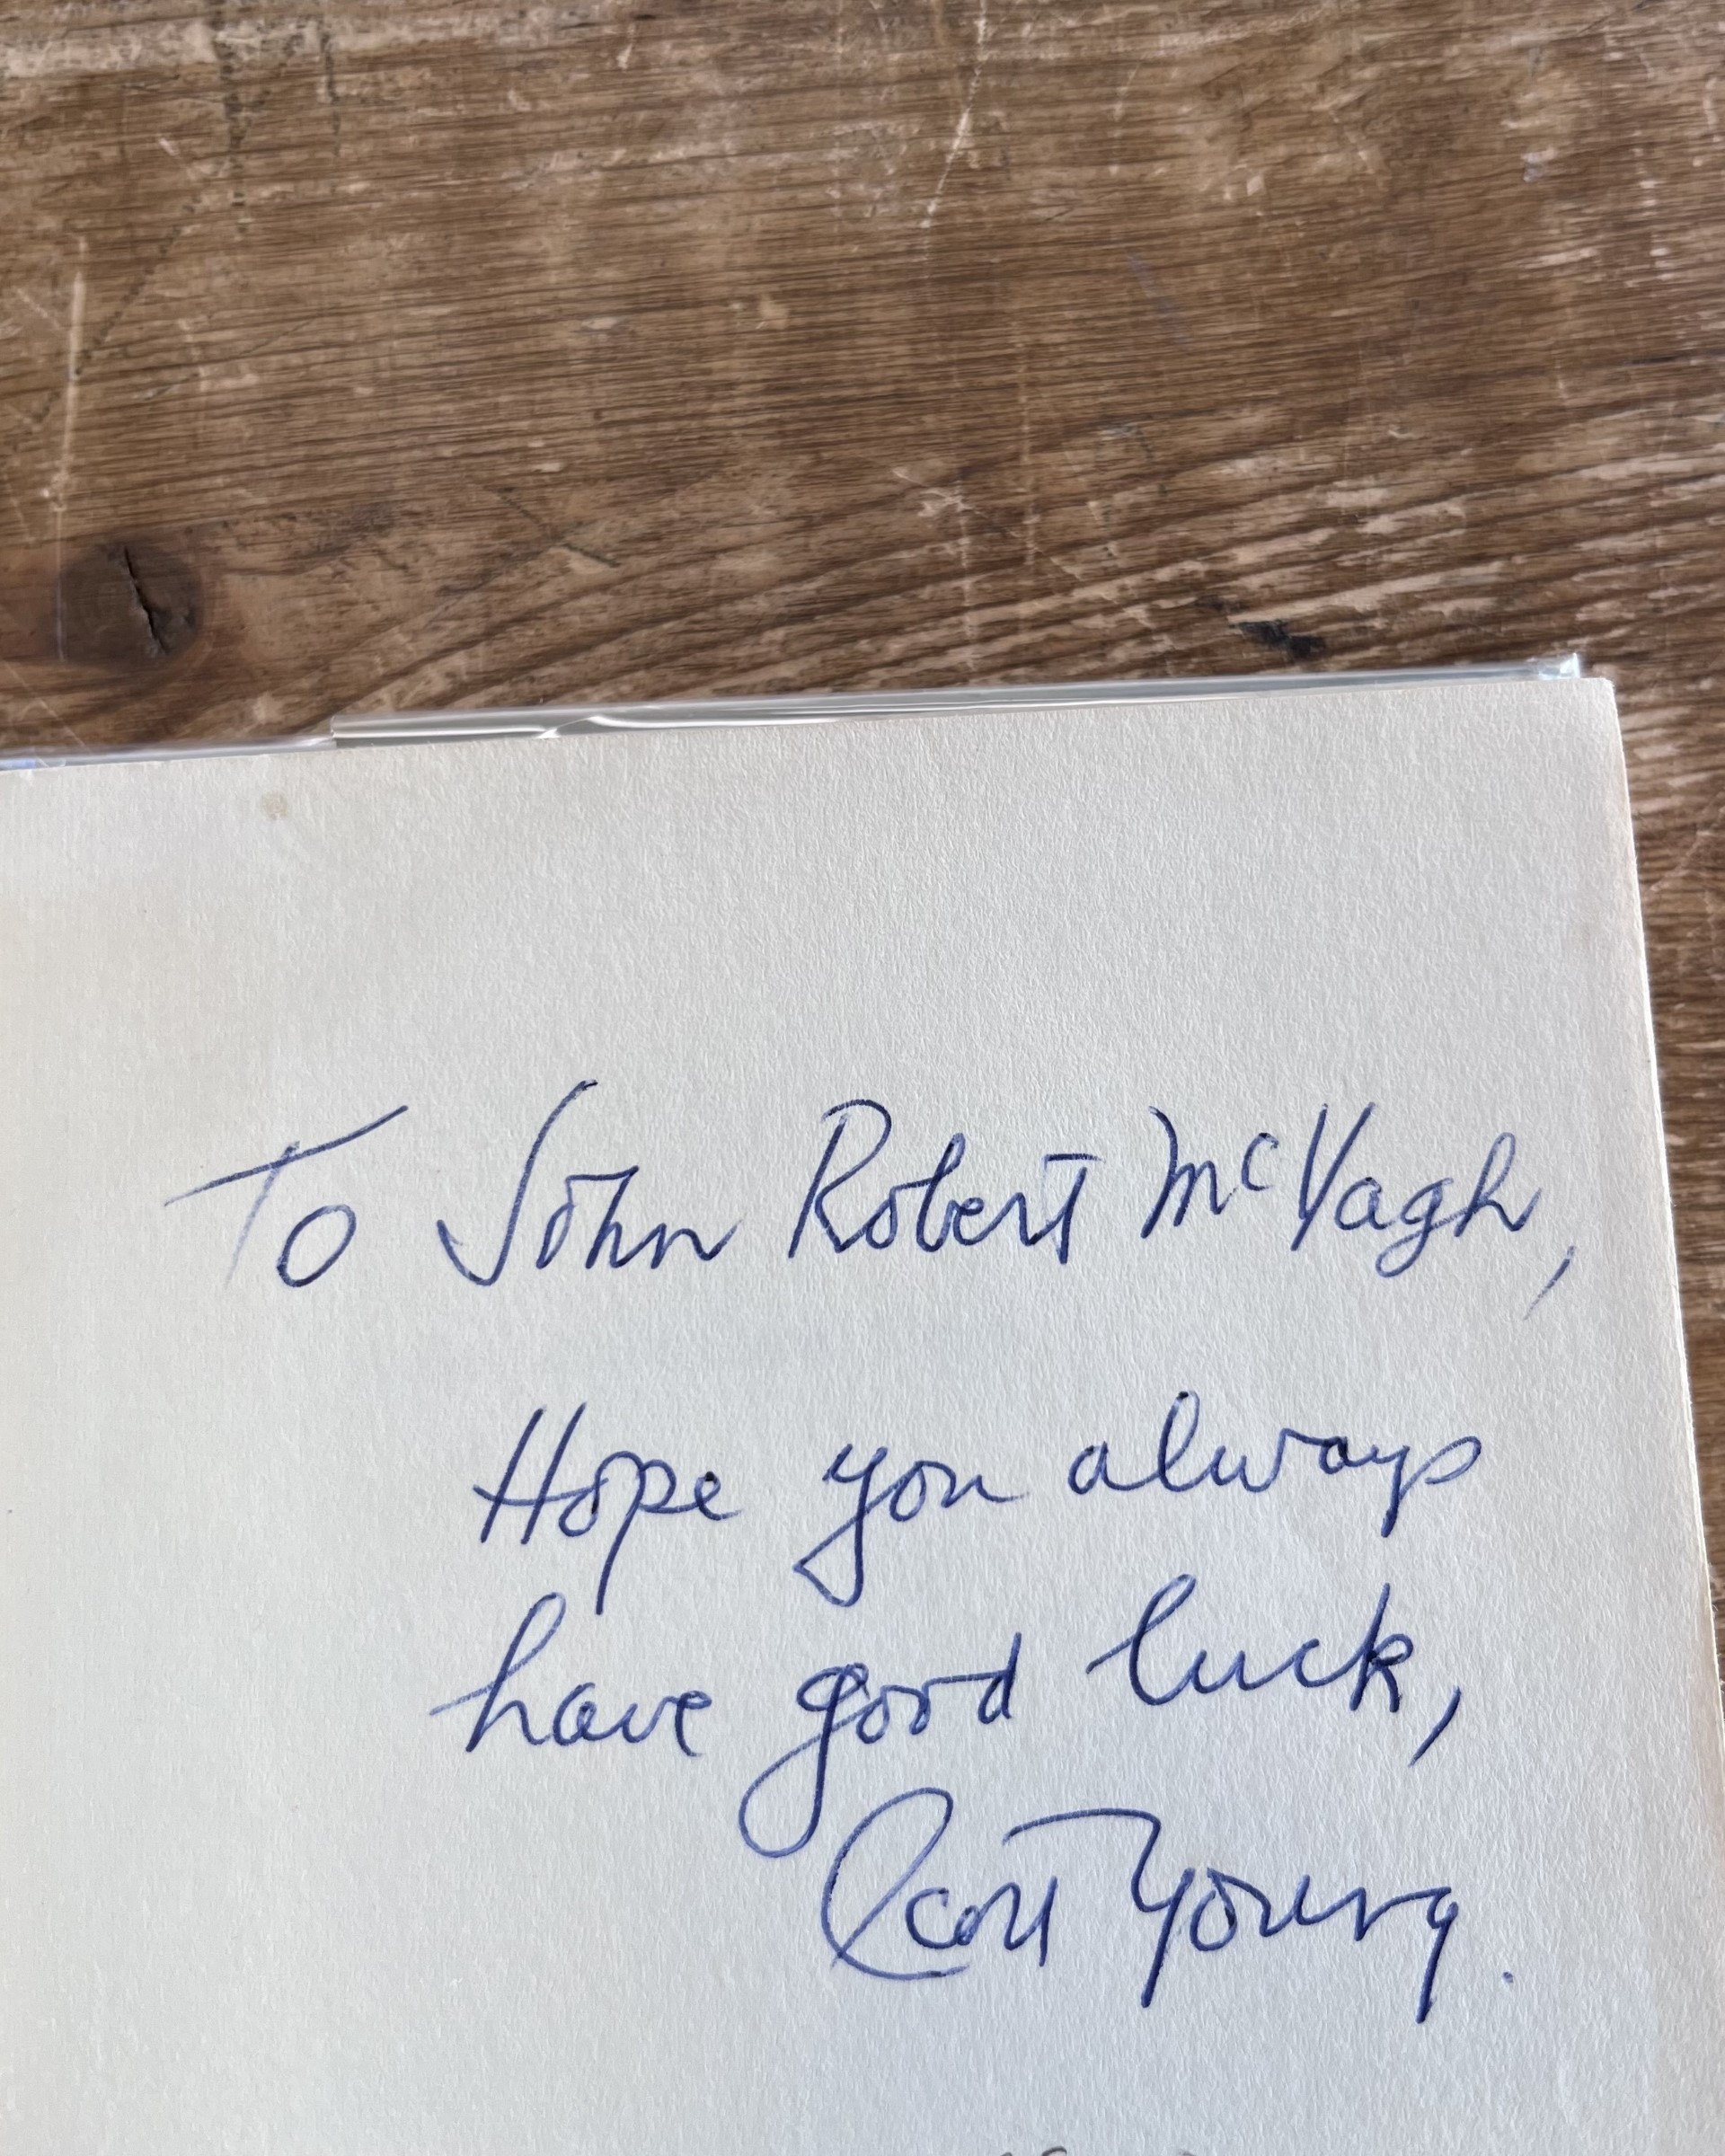 To John Robert McVagh,
Hope you always
have good luck,
Scott Young.